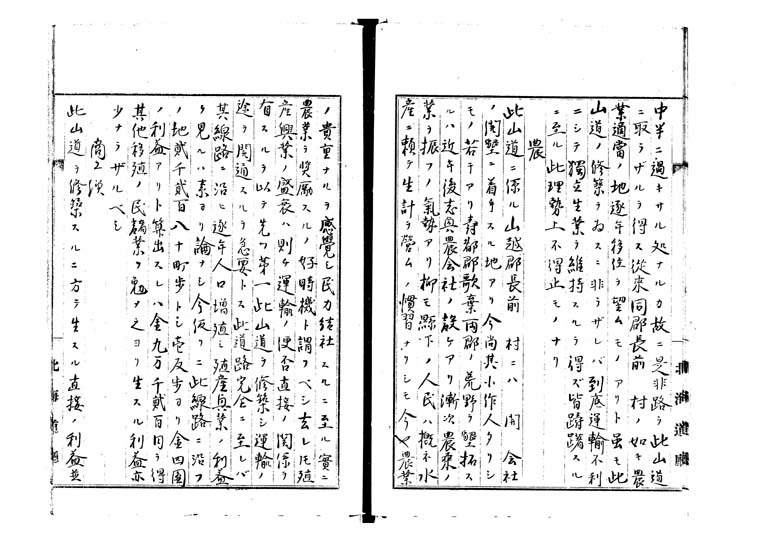 中半ニ過キサル処ナルカ故ニ是非路ヲ此山道
ニ取ラザルヲ得ス従来同郡長萬 村ノ如キ農
業適當ノ地逐年移住ヲ望ムモノアリト虽モ此
山道ノ修築ヲ為スニ非ラザレバ到底運輸不利
ニシテ獨立生業ヲ維持スルヲ得ズ皆躊躇スル
ニ至ル此理勢上不得止モノナリ
農
此山道ニ係ル山越郡長萬 村ニハ 開 会社
ノ開墾ニ着手スル地アリ今尚其小作人タリシ
モノ若干アリ寿都郡歌棄両郡ノ荒野ヲ墾拓ス
ルハ近年後志興農会社ノ設ケアリ漸次農耒ノ
業ヲ振フノ氣勢アリ抑モ縣下ノ人民ハ概ネ水
産ニ頼テ生計ヲ営ムノ慣習ナリシモ今ヤ農業
ノ貴重ナルヲ感覚シ民力結社スルニ至ル實ニ
農業ヲ奨励スルノ好時機ト謂フベシ去レ𪜈殖
産興業ノ盛衰ハ則チ運輸ノ便否直接ノ関係ヲ
有スルヲ以テ先ツ第一此山道ヲ修築シ運輸ノ
途ヲ開通スルヲ急要トス此道路完全ニ至レバ
其線路ニ沿ヒ逐年人口増殖シ殖産興業ノ利益
ヲ見ルハ素ヨリ論ナシ今仮リニ此線路ニ沿フ
ノ地貳千貳百八十町歩トシ壱反歩ヨリ金四圓
ノ利益アリト算出スレハ金九万千貳百円ヲ得
其他移殖ノ民藕業ヲ勉メ之ヨリ生スル利益亦
少ナラザルベシ
商工漁
此山道ヲ修築スルニ方テ生スル直接ノ利益並
北海道廳